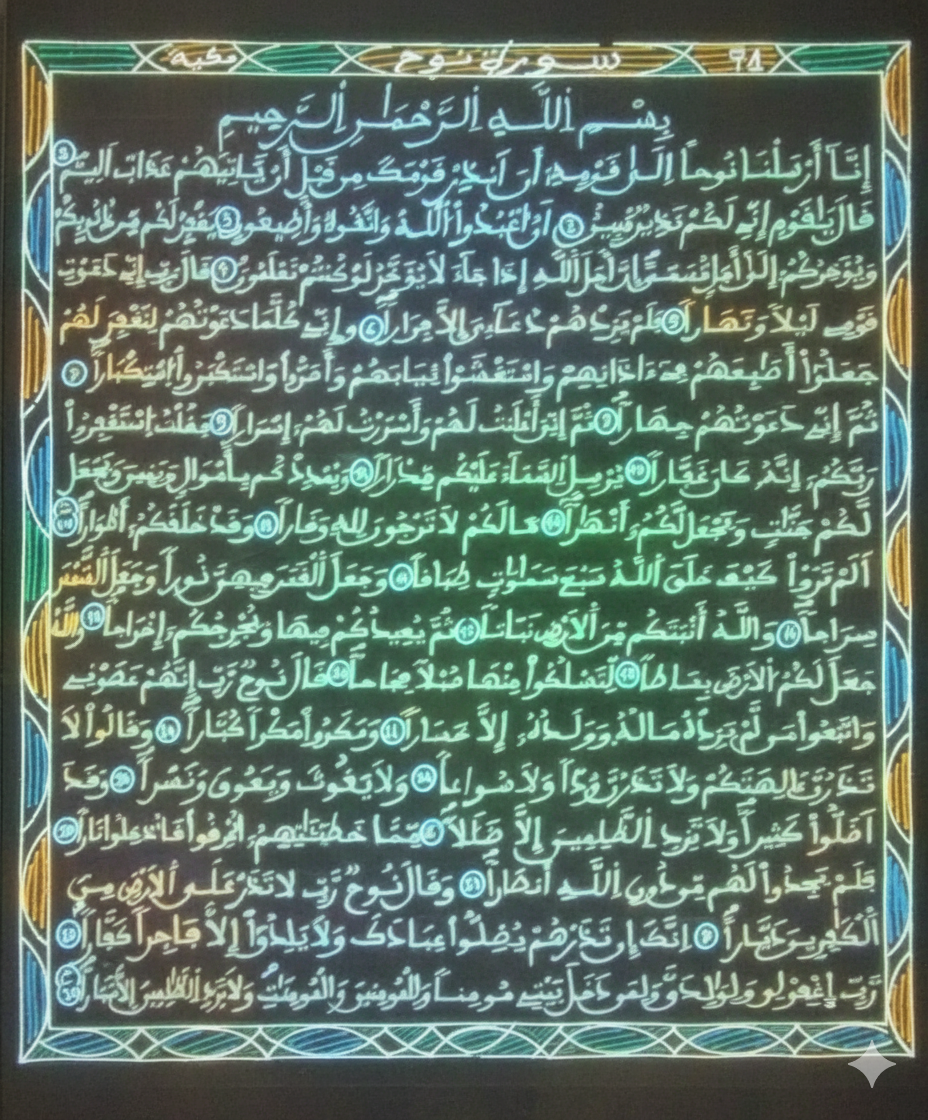 71 سورة نوح مكية
بِسْمِ اِللَّهِ اِلرَّحْمَٰنِ اِلرَّحِيمِ
إِنَّآ أَرْسَلْنَا نُوحاً اِلَىٰ قَوْمِهِۦٓ أَنَ اَنذِرْ قَوْمَكَ مِن قَبْلِ أَنْ يَّاتِيَهُمْ عَذَابٌ اَلِيمٌ
قَالَ يَٰقَوْمِ إِنِّے لَكُمْ نَذِيرٌ مُّبِينٌ 2 اَنُ اُعْبُدُواْ اُللَّهَ وَاتَّقُوهُ وَأَطِيعُونِ 3 يَغْفِرْ لَكُم مِّن ذُنُوبِكُمْ
وَيُؤَخِّرْكُمُۥٓ إِلَىٰٓ أَجَلٖ مُّسَمّىً اِنَّ أَجَلَ اَللَّهِ إِذَا جَآءَ لَا يُؤَخَّرُ لَوْ كُنتُمْ تَعْلَمُونَ 4 قَالَ رَبِّ إِنِّے دَعَوْتُ
قَوْمِے لَيْلاً وَنَهَاراً 5 فَلَمْ يَزِدْهُمْ دُعَآءِيَ إِلَّا فِرَاراً 6 وَإِنِّے كُلَّمَا دَعَوْتُهُمْ لِتَغْفِرَ لَهُمْ
جَعَلُوٓاْ أَصَٰبِعَهُمْ فِےٓ ءَاذَانِهِمْ وَاسْتَغْشَوْاْ ثِيَابَهُمْ وَأَصَرُّواْ وَاسْتَكْبَرُواْ اُسْتِكْبَاراً 7
ثُمَّ إِنِّے دَعَوْتُهُمْ جِهَاراً 8 ثُمَّ إِنِّيَ أَعْلَنتُ لَهُمْ وَأَسْرَرْتُ لَهُمُۥٓ إِسْرَاراً 9 فَقُلْتُ اُسْتَغْفِرُواْ
رَبَّكُمُۥٓ إِنَّهُۥ كَانَ غَفَّاراً 10 يُرْسِلِ اِلسَّمَآءَ عَلَيْكُم مِّدْرَاراً 11 وَيُمْدِدْكُم بِأَمْوَالٍ وَبَنِينَ وَيَجْعَل
لَّكُمْ جَنَّٰتٍ وَيَجْعَل لَّكُمُۥٓ أَنْهَٰراً 12 مَّا لَكُمْ لَا تَرْجُونَ لِلهِ وَقَاراً 13 وَقَدْ خَلَقَكُمُۥٓ أَطْوَاراً 14
اَلَمْ تَرَوْاْ كَيْفَ خَلَقَ اَللَّهُ سَبْعَ سَمَٰوَٰتٍ طِبَاقاً 15 وَجَعَلَ اَلْقَمَرَ فِيهِنَّ نُوراً وَجَعَلَ اَلشَّمْسَ
سِرَاجاً 16 وَاللَّهُ أَنْبَتَكُم مِّنَ اَلْأَرْضِ نَبَاتاً 17 ثُمَّ يُعِيدُكُمْ فِيهَا وَيُخْرِجُكُمُۥٓ إِخْرَاجاً 18 وَاللَّهُ
جَعَلَ لَكُمُ اُلْأَرْضَ بِسَاطاً 19 لِّتَسْلُكُواْ مِنْهَا سُبُلاً فِجَاجاً 20 قَالَ نُوحٌ رَّبِّ إِنَّهُمْ عَصَوْنِے
وَاتَّبَعُواْ مَن لَّمْ يَزِدْهُ مَالُهُۥ وَوَلَدُهُۥٓ إِلَّا خَسَاراً 21 وَمَكَرُواْ مَكْراً كُبَّاراً 22 وَقَالُواْ لَا
تَذَرُنَّ ءَالِهَتَكُمْ وَلَا تَذَرُنَّ وُدّاً وَلَا سُوَاعاً 23 وَلَا يَغُوثَ وَيَعُوقَ وَنَسْراً وَقَدَ
اَضَلُّواْ كَثِيراً وَلَا تَزِدِ اِلظَّٰلِمِينَ إِلَّا ضَلَٰلاً مِّمَّا خَطِيٓـَٰٔتِهِمُۥٓ أُغْرِقُواْ فَأُدْخِلُواْ نَاراً
فَلَمْ يَجِدُواْ لَهُم مِّن دُونِ اِللَّهِ أَنصَاراً وَقَالَ نُوحٌ رَّبِّ لَا تَذَرْ عَلَى اَلْأَرْضِ مِنَ
اَلْكَٰفِرِينَ دَيَّاراً اِنَّكَ إِن تَذَرْهُمْ يُضِلُّواْ عِبَادَكَ وَلَا يَلِدُوٓاْ إِلَّا فَاجِراً كَفَّاراً
رَّبِّ اِغْفِرْ لِے وَلِوَٰلِدَيَّ وَلِمَن دَخَلَ بَيْتِے مُومِناً وَلِلْمُومِنِينَ وَالْمُومِنَٰتِ وَلَا تَزِدِ اِلظَّٰلِمِينَ إِلَّا تَبَاراً